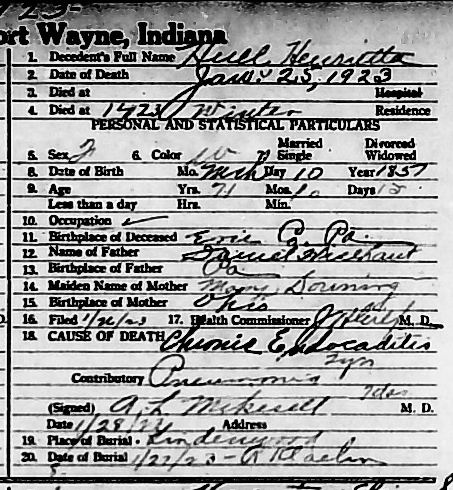 ort Wayne, Indiana
1. Decedent's Full Name Hull Henrietta
2. Date of Death Jan. 25, 1923
3. Died at Hospital
4. Died at 1423 Winter Residence
PERSONAL AND STATISTICAL PARTICULARS
5. Sex F 6. Color W 7. Married Single Divorced Widowed
8. Date of Birth Mo. Mch Day 10 Year 1851
9. Age Yrs. 71 Mos. 10 Days 15
Less than a day Hrs. Min.
10. Occupation ✓
11. Birthplace of Deceased Erie Co. Pa.
12. Name of Father
13. Birthplace of Father Pa
14. Maiden Name of Mother Mary
15. Birthplace of Mother Ohio
16. Filed 1/26/23 17. Health Commissioner M. D.
18. CAUSE OF DEATH Chronic Endocaditis
2yrs
Contributory Pneumonia
7das
(Signed) A. L. Mikesell M. D.
Date Address
19. Place of Burial Lindenwood
20. Date of Burial